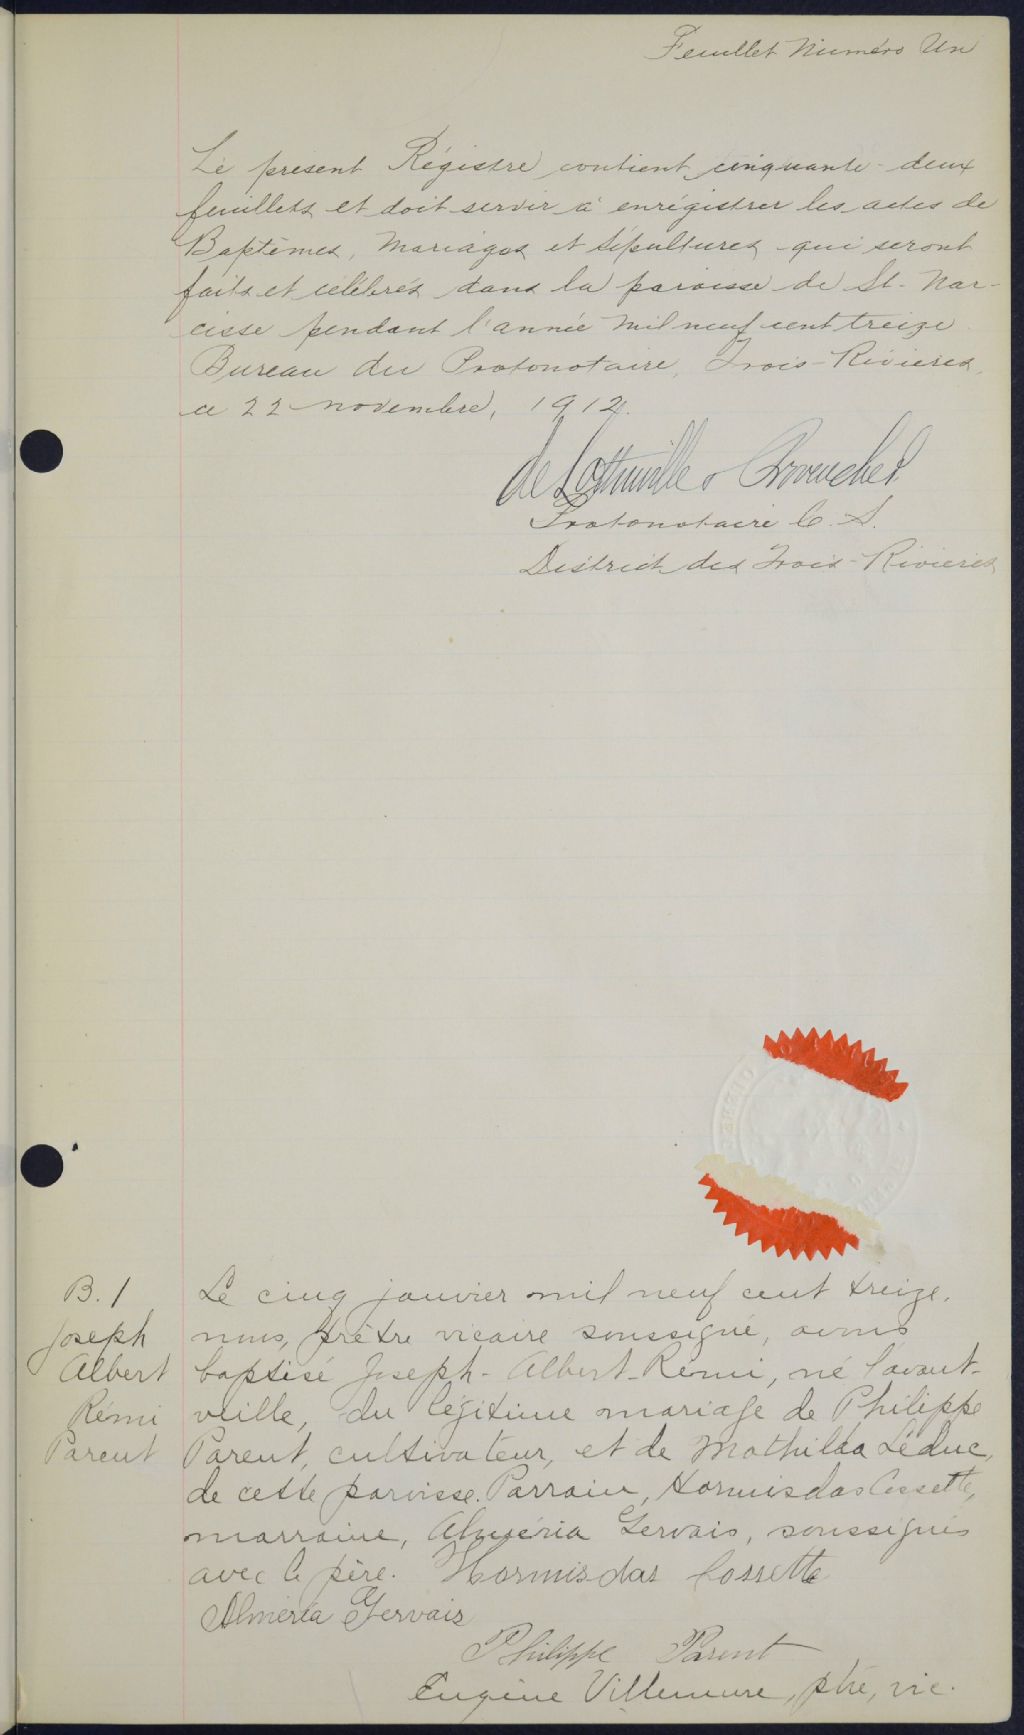 Feuillet Numéro Un
Le présent Régistre contient cinquante-deux
feuillets et doit servir à enrégistrer les actes de
Baptêmes, Mariages et Sépultures qui seront
faits et célébrés dans la paroisse de St-Nar-
cisse pendant l'année mil neuf cent treize
Bureau du Protonotaire, Trois-Rivieres,
ce 22 novembre, 1912.
de Lottinville & Provencher
Protonotaire C. S.
District des Trois-Rivieres
B. 1
Joseph
Albert
Rémi
Parent
Le cinq janvier mil neuf cent treize,
nous, prêtre vicaire soussigné, avons
baptisé Joseph-Albert-Rémi, né l'avant-
veille, du légitime mariage de Philippe
Parent, cultivateur, et de Mathilda Léduc,
de cette paroisse. Parrain, Hormisdas Cossette,
marraine, Alméria Gervais, soussignés
avec le père. Hormisdas Cossette
Alméria Gervais
Philippe Parent
Eugène Villemure, ptre, vic.